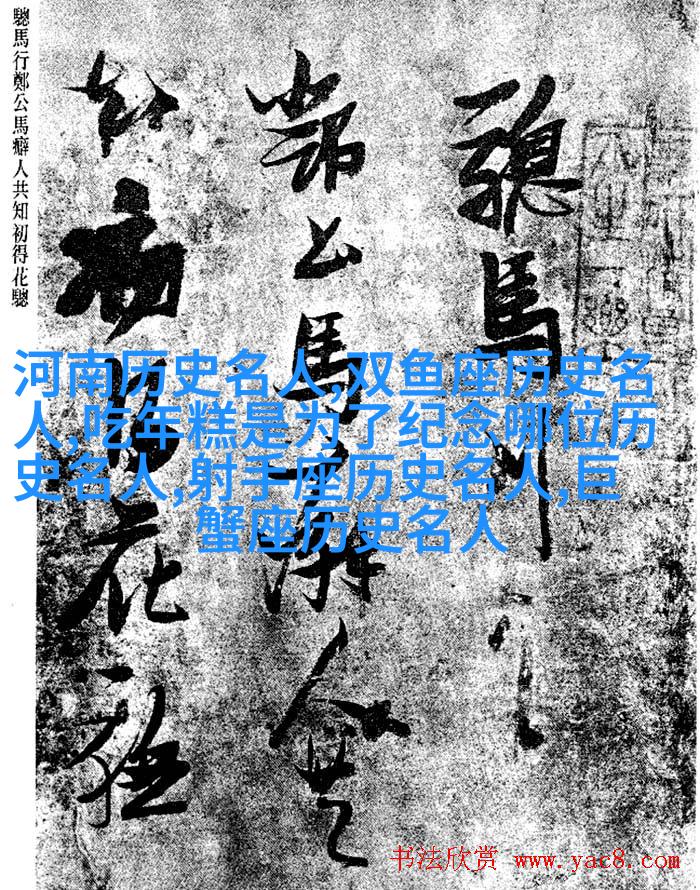 驄馬行鄭公馬癖人共知初得花驄
驄馬行
鄭公馬癖人共
知初得花驄
河南历史名人,双鱼座历史名
人,吃年糕是为了纪念哪位历
史名人,射手座历史名人,巨
蟹座历史名人
书法欣赏 www.yac8.com